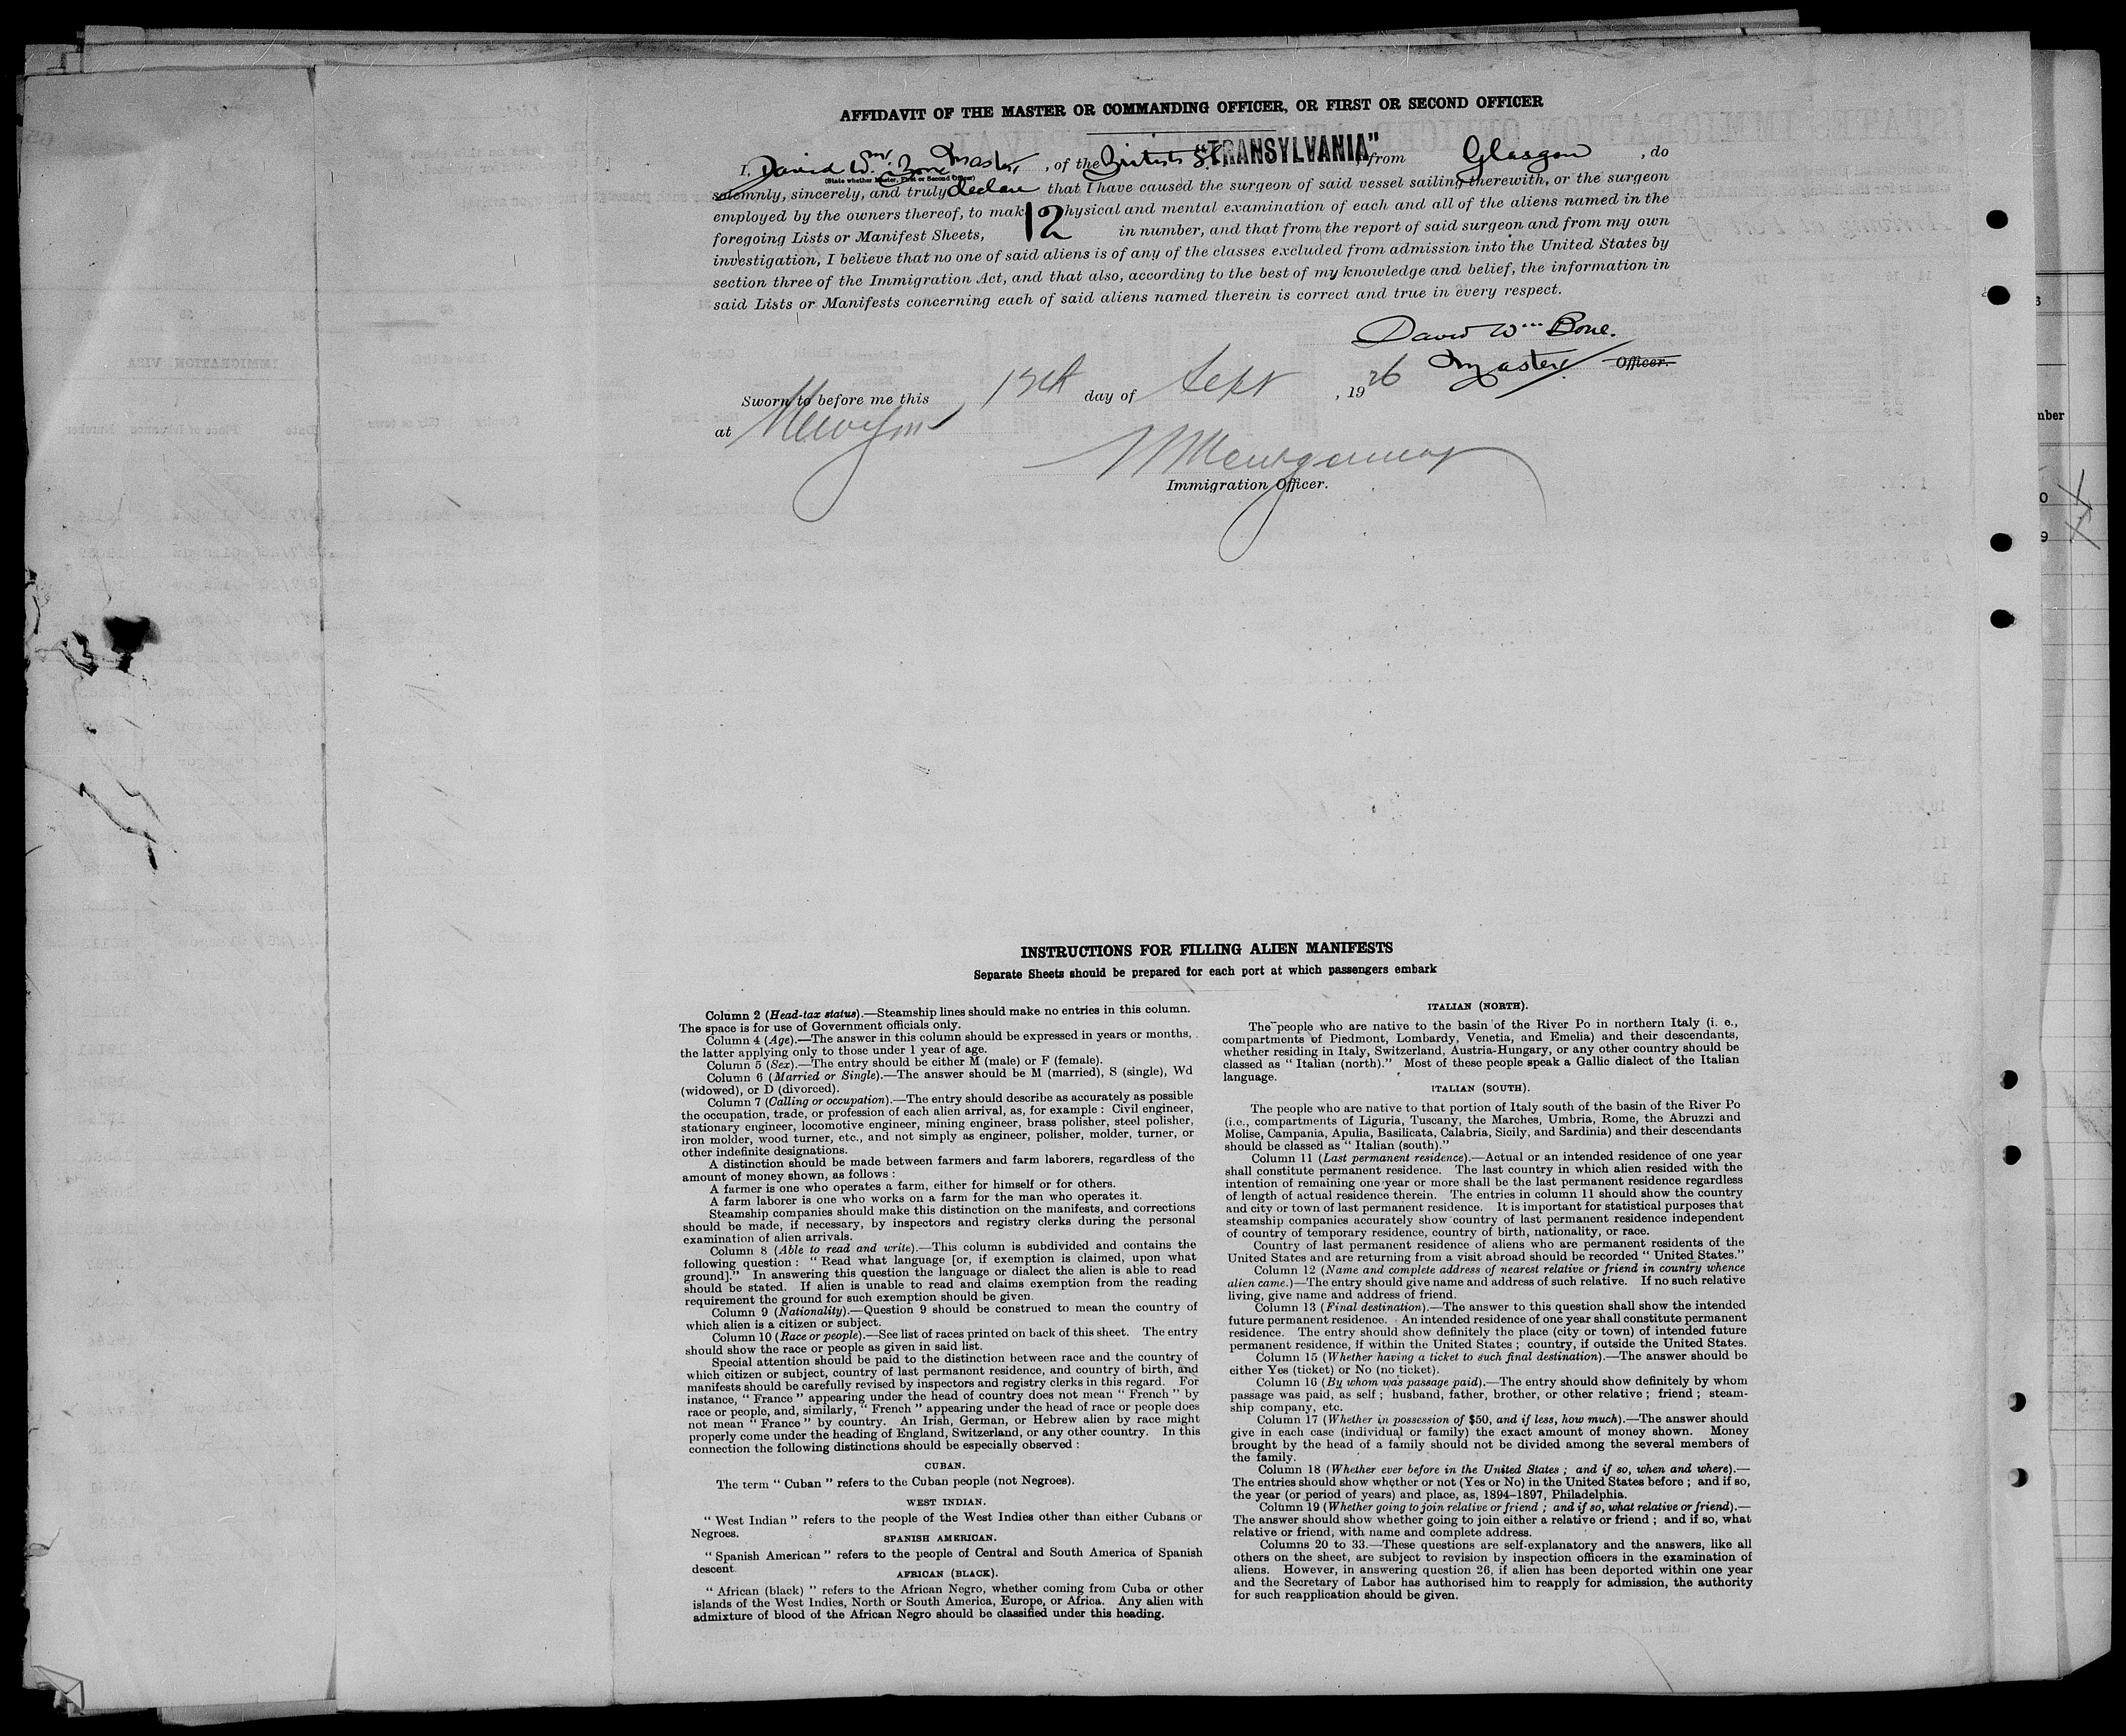 AFFIDAVIT OF THE MASTER OR COMMANDING OFFICER, OR FIRST OR SECOND OFFICER
I, David Wm. Bone Master, of the British S.S. "TRANSYLVANIA", from Glasgow, do
(State whether Master, First or Second Officer)
solemnly, sincerely, and truly declare that I have caused the surgeon of said vessel sailing therewith, or the surgeon
employed by the owners thereof, to mak hysical and mental examination of each and all of the aliens named in the
foregoing Lists or Manifest Sheets, 12 in number, and that from the report of said surgeon and from my own
investigation, I believe that no one of said aliens is of any of the classes excluded from admission into the United States by
section three of the Immigration Act, and that also, according to the best of my knowledge and belief, the information in
said Lists or Manifests concerning each of said aliens named therein is correct and true in every respect.
David Wm Bone.
Master. Officer.
Sworn to before me this day of Sept, 1926
at
Montgomery
Immigration Officer.
INSTRUCTIONS FOR FILLING ALIEN MANIFESTS
Separate Sheets should be prepared for each port at which passengers embark
Column 2 (Head-tax status).—Steamship lines should make no entries in this column.
The space is for use of Government officials only.
Column 4 (Age).—The answer in this column should be expressed in years or months,
the latter applying only to those under 1 year of age.
Column 5 (Sex).—The entry should be either M (male) or F (female).
Column 6 (Married or Single).—The answer should be M (married), S (single), Wd
(widowed), or D (divorced).
Column 7 (Calling or occupation).—The entry should describe as accurately as possible
the occupation, trade, or profession of each alien arrival, as, for example : Civil engineer,
stationary engineer, locomotive engineer, mining engineer, brass polisher, steel polisher,
iron molder, wood turner, etc., and not simply as engineer, polisher, molder, turner, or
other indefinite designations.
A distinction should be made between farmers and farm laborers, regardless of the
amount of money shown, as follows :
A farmer is one who operates a farm, either for himself or for others.
A farm laborer is one who works on a farm for the man who operates it.
Steamship companies should make this distinction on the manifests, and corrections
should be made, if necessary, by inspectors and registry clerks during the personal
examination of alien arrivals.
Column 8 (Able to read and write).—This column is subdivided and contains the
following question : " Read what language [or, if exemption is claimed, upon what
ground]." In answering this question the language or dialect the alien is able to read
should be stated. If alien is unable to read and claims exemption from the reading
requirement the ground for such exemption should be given.
Column 9 (Nationality).—Question 9 should be construed to mean the country of
which alien is a citizen or subject.
Column 10 (Race or people).—See list of races printed on back of this sheet. The entry
should show the race or people as given in said list.
Special attention should be paid to the distinction between race and the country of
which citizen or subject, country of last permanent residence, and country of birth, and
manifests should be carefully revised by inspectors and registry clerks in this regard. For
instance, " France " appearing under the head of country does not mean " French " by
race or people, and, similarly, " French " appearing under the head of race or people does
not mean " France " by country. An Irish, German, or Hebrew alien by race might
properly come under the heading of England, Switzerland, or any other country. In this
connection the following distinctions should be especially observed :
CUBAN.
The term " Cuban " refers to the Cuban people (not Negroes).
WEST INDIAN.
" West Indian " refers to the people of the West Indies other than either Cubans or
Negroes.
SPANISH AMERICAN.
" Spanish American " refers to the people of Central and South America of Spanish
descent.
AFRICAN (BLACK).
" African (black) " refers to the African Negro, whether coming from Cuba or other
islands of the West Indies, North or South America, Europe, or Africa. Any alien with
admixture of blood of the African Negro should be classified under this heading.
ITALIAN (NORTH).
The people who are native to the basin of the River Po in northern Italy (i. e.,
compartments of Piedmont, Lombardy, Venetia, and Emelia) and their descendants,
whether residing in Italy, Switzerland, Austria-Hungary, or any other country should be
classed as " Italian (north)." Most of these people speak a Gallic dialect of the Italian
language.
ITALIAN (SOUTH).
The people who are native to that portion of Italy south of the basin of the River Po
(i.e., compartments of Liguria, Tuscany, the Marches, Umbria, Rome, the Abruzzi and
Molise, Campania, Apulia, Basilicata, Calabria, Sicily, and Sardinia) and their descendants
should be classed as " Italian (south)."
Column 11 (Last permanent residence).—Actual or an intended residence of one year
shall constitute permanent residence. The last country in which alien resided with the
intention of remaining one year or more shall be the last permanent residence regardless
of length of actual residence therein. The entries in column 11 should show the country
and city or town of last permanent residence. It is important for statistical purposes that
steamship companies accurately show country of last permanent residence independent
of country of temporary residence, country of birth, nationality, or race.
Country of last permanent residence of aliens who are permanent residents of the
United States and are returning from a visit abroad should be recorded " United States."
Column 12 (Name and complete address of nearest relative or friend in country whence
alien came.)—The entry should give name and address of such relative. If no such relative
living, give name and address of friend.
Column 13 (Final destination).—The answer to this question shall show the intended
future permanent residence. An intended residence of one year shall constitute permanent
residence. The entry should show definitely the place (city or town) of intended future
permanent residence, if within the United States ; country, if outside the United States.
Column 15 (Whether having a ticket to such final destination).—The answer should be
either Yes (ticket) or No (no ticket).
Column 16 (By whom was passage paid).—The entry should show definitely by whom
passage was paid, as self ; husband, father, brother, or other relative ; friend ; steam-
ship company, etc.
Column 17 (Whether in possession of $50, and if less, how much).—The answer should
give in each case (individual or family) the exact amount of money shown. Money
brought by the head of a family should not be divided among the several members of
the family.
Column 18 (Whether ever before in the United States ; and if so, when and where).—
The entries should show whether or not (Yes or No) in the United States before ; and if so,
the year (or period of years) and place, as, 1894–1897, Philadelphia.
Column 19 (Whether going to join relative or friend ; and if so, what relative or friend).—
The answer should show whether going to join either a relative or friend ; and if so, what
relative or friend, with name and complete address.
Columns 20 to 33.—These questions are self-explanatory and the answers, like all
others on the sheet, are subject to revision by inspection officers in the examination of
aliens. However, in answering question 26, if alien has been deported within one year
and the Secretary of Labor has authorised him to reapply for admission, the authority
for such reapplication should be given.